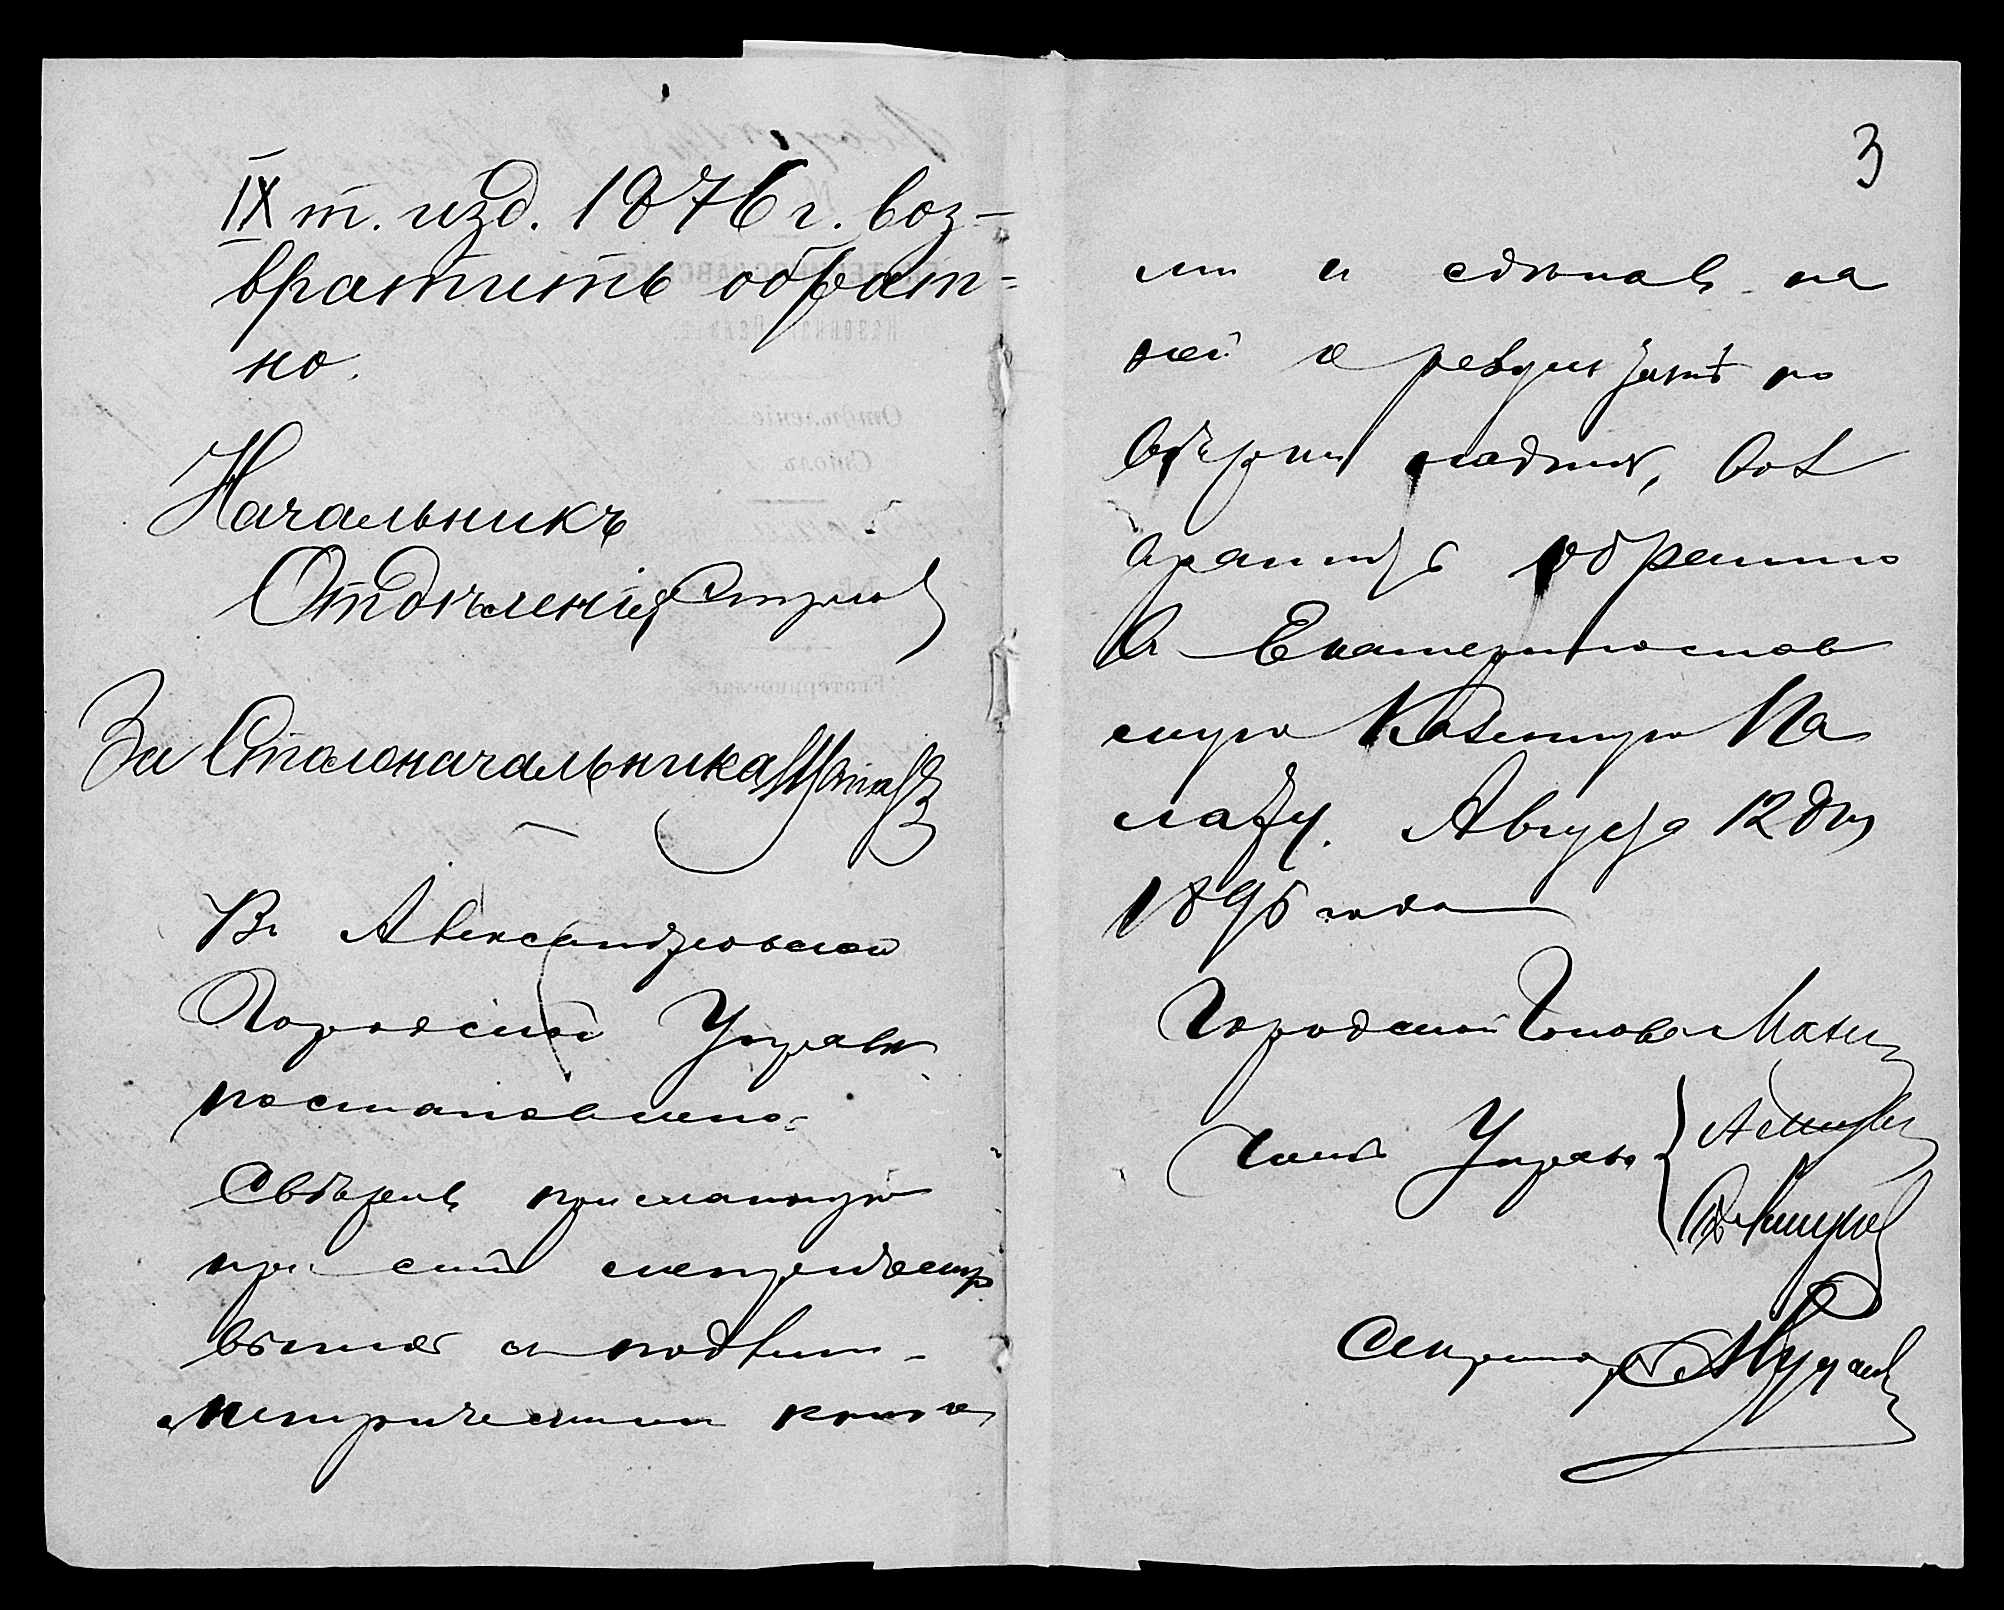 IX т. изд. 1876 г. воз-
вратить обрат=
но.
Начальникъ
Отдѣленія
За Столоначальника
Въ Александровской
Городской Управѣ
постановлено:
Свѣривъ присланную
при семъ
съ подлин-
метрическими книга
3
ми и сдѣлавъ на
ней о
надпись, воз
вратить обратно
въ Екатеринослав
скую Казенную Па
лату. Августа 12 дня
1895 года
Городской Голова
Члены Управы
Секретарь